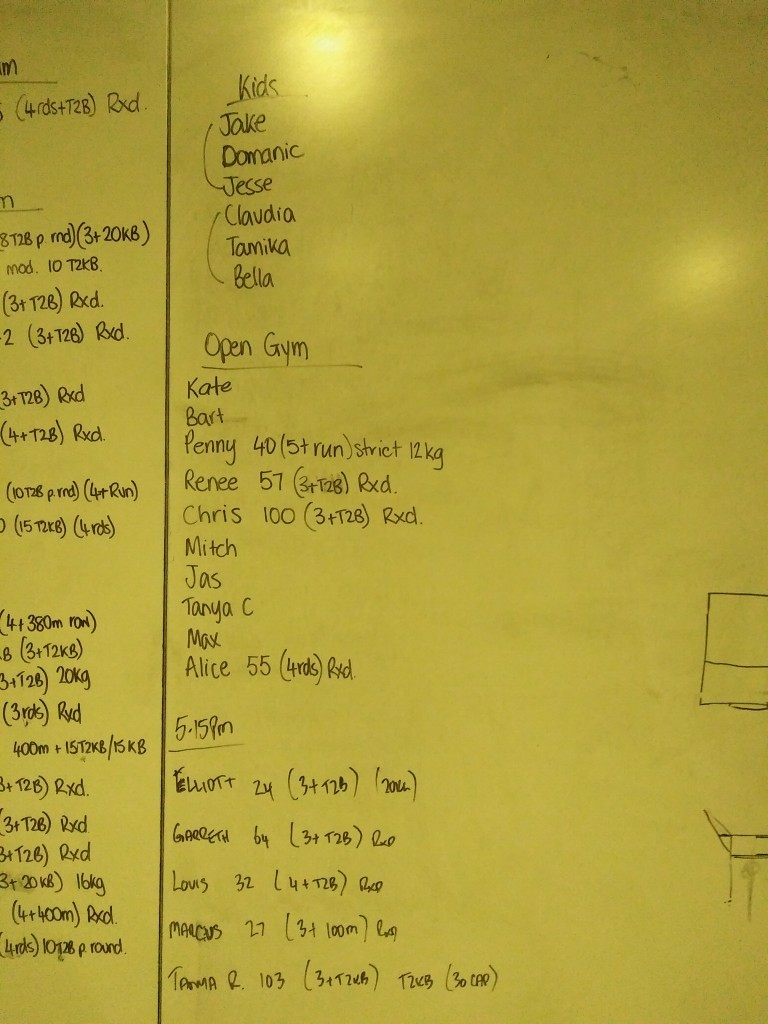 m
(4rds+T2B) Rxd.
m
8T2B p. rnd)(3+20KB)
mod. 10 T2KB.
(3+T2B) Rxd.
2 (3+T2B) Rxd.
3+T2B) Rxd
(4+T2B) Rxd.
(10T2B p.rnd) (4+Run)
(15T2KB) (4rds)
(4+380m row)
B (3+T2KB)
3+T2B) 20kg
(3rds) Rxd
400m + 15T2KB/15KB
3+T2B) Rxd.
(3+T2B) Rxd
3+T2B) Rxd
3+20KB) 16kg
(4+400m) Rxd.
(4rds) 10T2B p. round.
Kids
Jake
Domanic
Jesse
Claudia
Tamika
Bella
Open Gym
Kate
Bart
Penny 40 (5+run) strict 12kg
Renee 57 (3+T2B) Rxd.
Chris 100 (3+T2B) Rxd.
Mitch
Jas
Tanya C
Max
Alice 55 (4rds) Rxd.
5.15Pm
ELLIOTT 24 (3+T2B)
GARRETH 64 (3+T2B) RxD
LOUIS 32 (4+T2B) RxD
MARCUS 27 (3+100m) RxD
TANYA R. 103 (3+T2KB) T2KB (30 CAP)